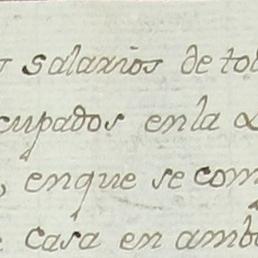 salarios de to
cupados en la
, enque se com
casa en amb